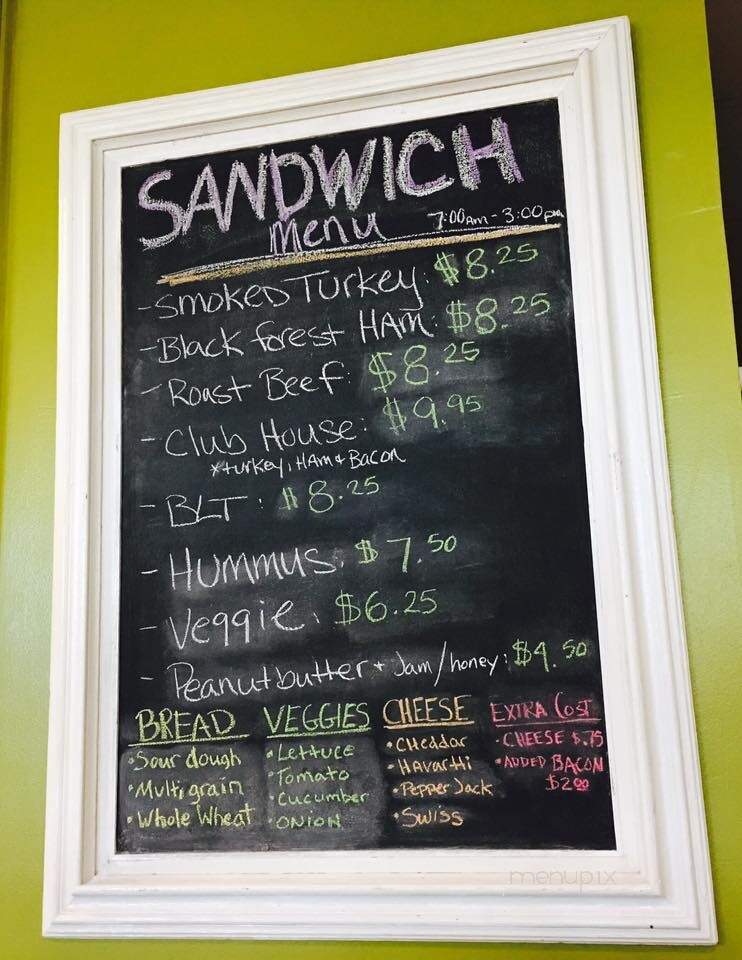 SANDWICH
Menu 7:00Am - 3:00pm
- Smoked Turkey: $8.25
- Black forest HAM: $8.25
- Roast Beef: $8.25
- Club House: $9.95
*turkey, HAM + Bacon
- BLT: $8.25
- Hummus: $7.50
- Veggie: $6.25
- Peanutbutter + Jam/honey: $4.50
BREAD
• Sour dough
• Multigrain
• Whole Wheat
VEGGIES
• Lettuce
• Tomato
• Cucumber
• ONION
CHEESE
• CHeddar
• HAvarti
• Pepper Jack
• Swiss
EXTRA COST
• CHEESE $.75
• ADDED BACON
$2.00
menupix